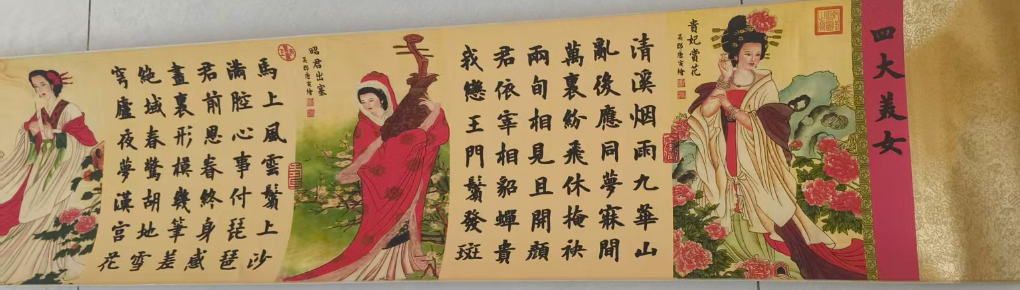 四大美女
貴妃賞花
吳郡唐寅繪
清溪烟雨九華山
亂後應同夢寐間
萬裏紛飛休掩袂
兩旬相見且開顏
君依宰相貂蟬貴
我戀王門鬢發斑
昭君出塞
吳郡唐寅繪
馬上風雲鬢上沙
滿腔心事付琵琶
君前恩眷終身感
畫裏形模幾筆差
絕域春驚胡地雪
穹廬夜夢漢宮花